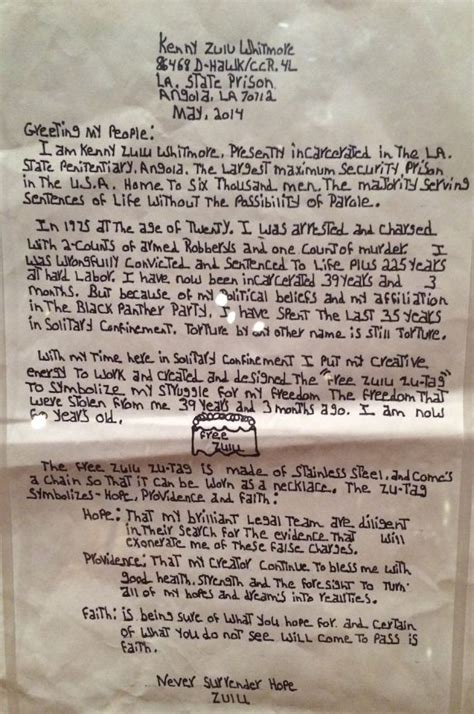 Kenny Zulu Whitmore
86468 D-Hawk/CCR. 4L
LA. State Prison
Angola, LA 70712
May, 2014
Greeting My People:
I am Kenny Zulu Whitmore, Presently incarcerated in The LA.
State Penitentiary, Angola. The Largest maximum Security Prison
in The U.S.A. Home To Six Thousand men, The majority Serving
Sentences of Life Without The Possibility of Parole..
In 1975 at The age of Twenty. I was arrested and charged
with 2-Counts of armed Robberys and one Count of murder. I
was Wrongfully Convicted and Sentenced To Life Plus 225 Years
at hard Labor. I have now been incarcerated 39 Years and 3
months. But because of my Political beliefs and my affiliation
in The Black Panther Party, I have Spent The Last 35 Years
in Solitary Confinement. Torture by any other name is Still Torture.
With my Time here in Solitary Confinement I Put my creative
energy To Work and created and designed The "Free Zulu Zu-Tag"
To Symbolize my Struggle for my freedom The Freedom That
were Stolen from me 39 Years and 3 months ago. I am now
Years old.
Free
Zulu
The Free Zulu Zu-Tag is made of Stainless Steel, and Come's
a Chain So That it Can be Worn as a necklace. The Zu-Tag
Symbolizes- Hope, Providence and Faith:
Hope: That my brilliant Legal Team are diligent
in Their Search for The evidence That will
exonerate me of These False Charges.
Providence: That my Creator Continue To bless me with
good health, Strength and The foresight To Turn
all of my hopes and dreams into realities.
Faith: is being Sure of what You hope for. and Certain
of What You do not See Will Come To Pass is
Faith.
Never Surrender Hope
Zulu